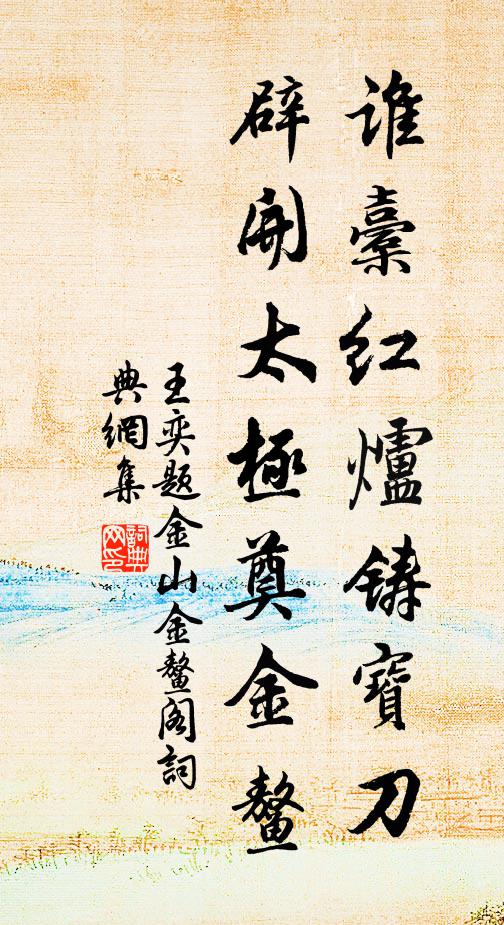 谁橐红爐铸寶刀
辟開太極奠金鳌
王奕题金山金鳌阁詞
典網集
詞典
网印